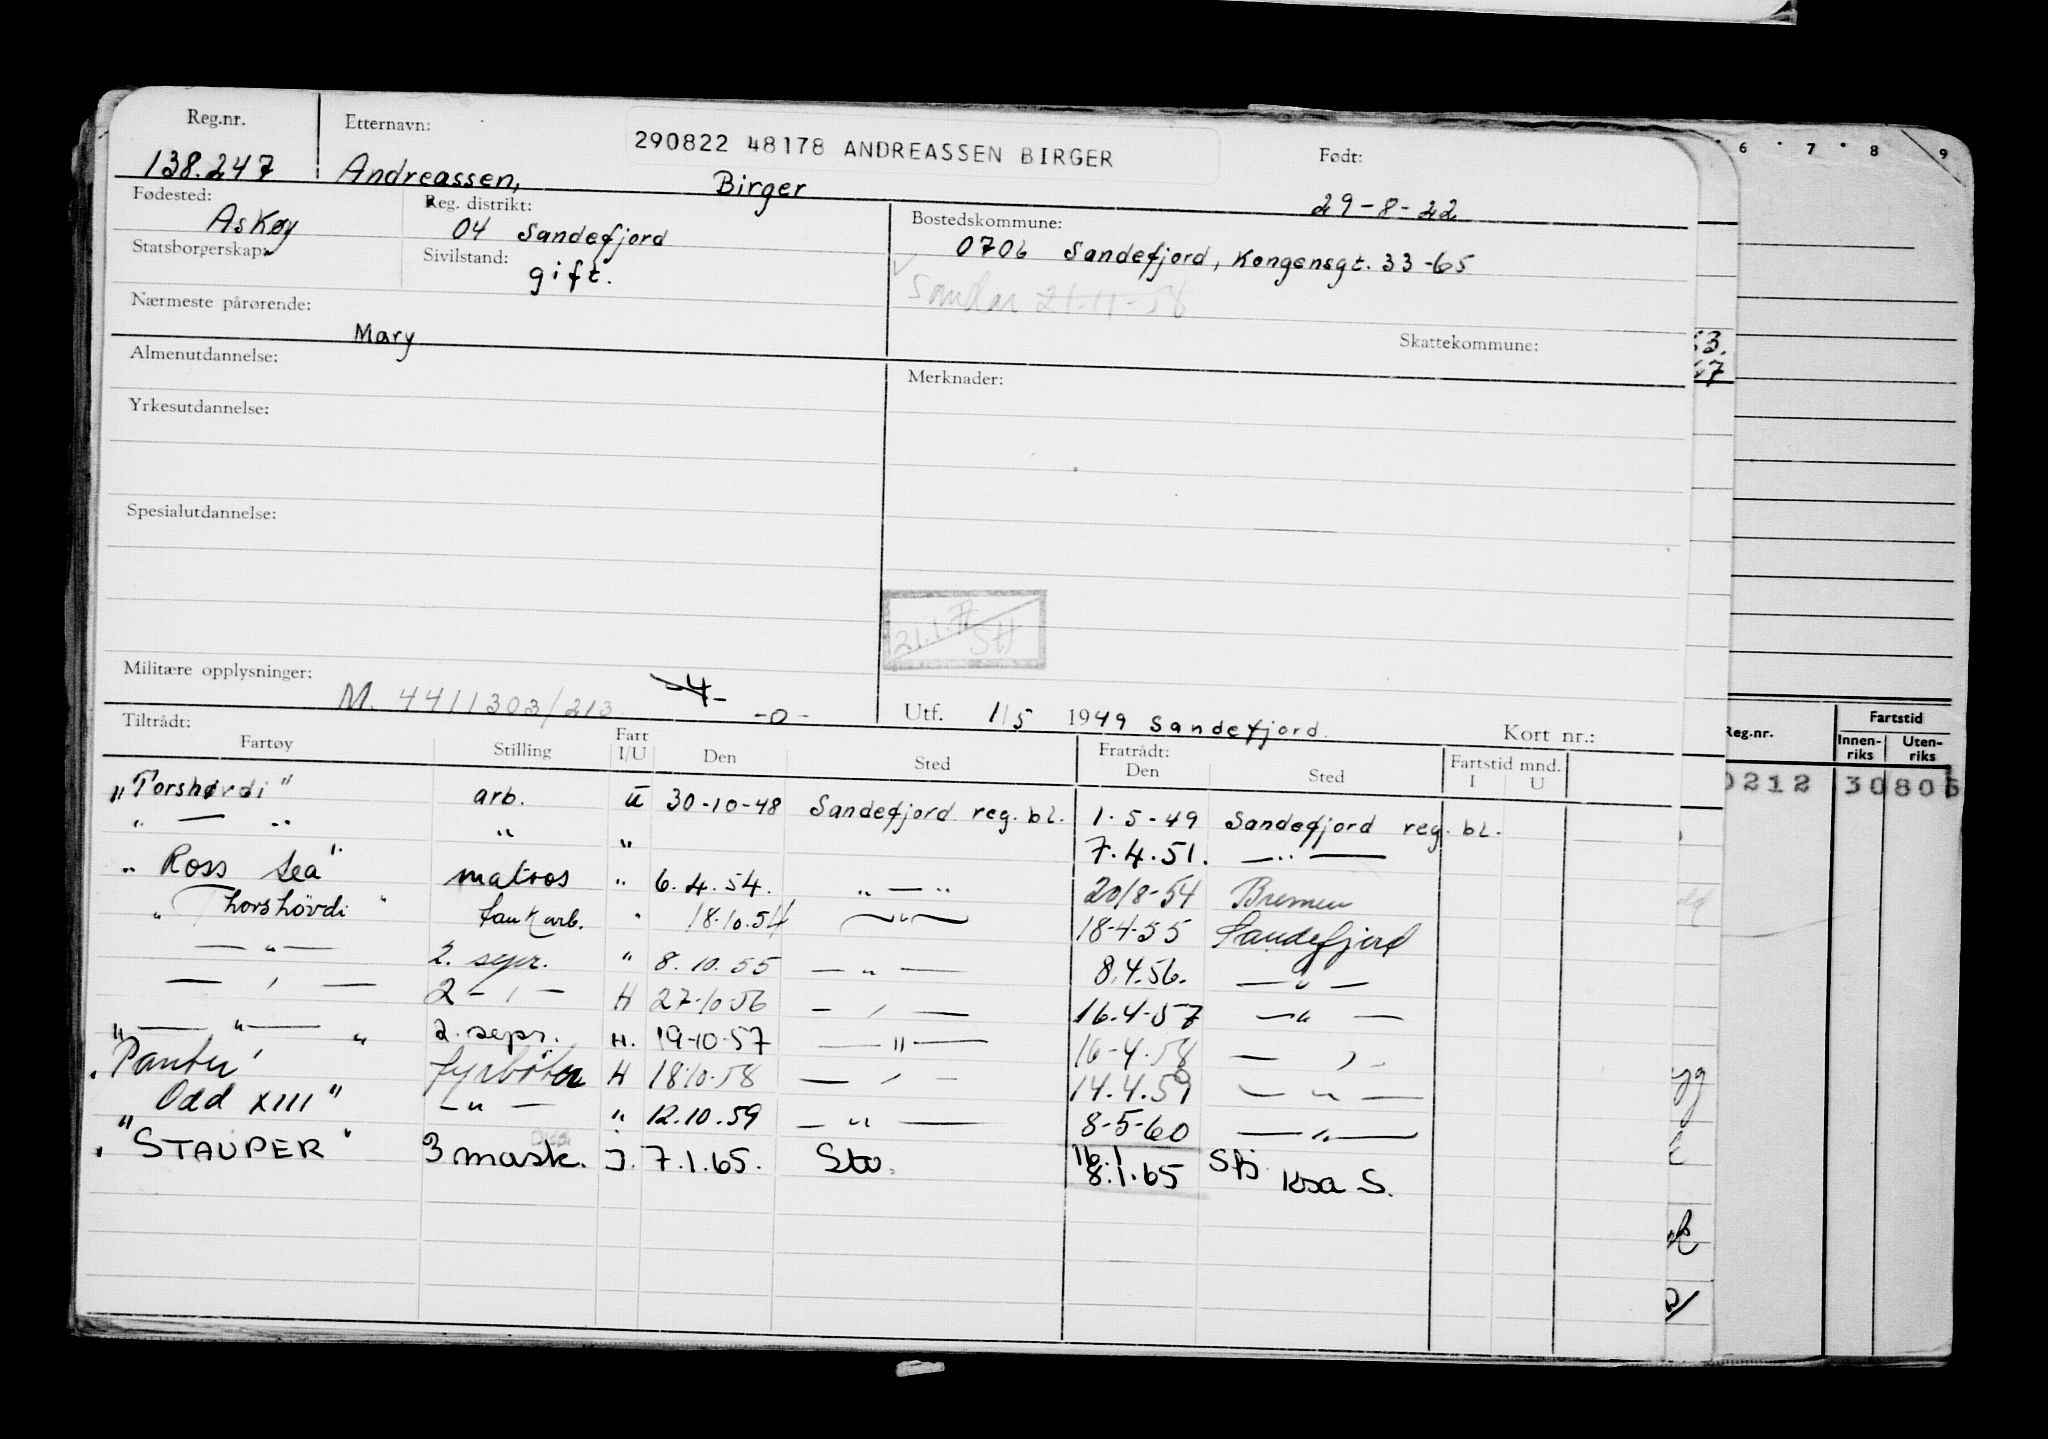 Reg.nr. Etternavn: 290822 48178 ANDREASSEN BIRGER Født:
138.247 Andreassen, Birger 29-8-22
Fødested: Askøy Reg. distrikt: 04 Sandefjord Bostedskommune: 0706 Sandefjord, Kongensgt. 33-65
Statsborgerskap: Sivilstand: gift. Sandar 21-11-58
Nærmeste pårørende: Mary Skattekommune:
Almenutdannelse: Merknader:
Yrkesutdannelse:
Spesialutdannelse:
21.1. SH
Militære opplysninger: M. 4411303/213 -4- -0- Utf. 1/5 1949 Sandefjord. Kort nr.:
Tiltrådt: Fratrådt:
Fartøy Stilling Fart I/U Den Sted Den Sted Fartstid mnd. I U
"Torshøvdi" arb. U 30-10-48 Sandefjord reg. bl. 1.5-49 Sandefjord reg. bl.
" — " " " 7.4.51. — " —
" Ross Sea" matros " 6.4.54. " — " 20/8-54 Bremen
" Thorshövdi " tankarb. " 18.10.54 — " — 18-4-55 Sandefjord
— " — 2. sepr. " 8.10.55 — " — 8.4.56. — " —
— " — 2 — " — H 27-10-56 — " — 16.4-57 — " —
" — " — " 2. sepr. H. 19-10-57 — " — 16-4-58 — " —
"Panter" fyrbøter H 18.10.58 — " — 14.4.59 — " —
"Odd XIII" — " — " 12.10.59 — " — 8-5-60 — " —
"STAUPER" 3 mask. J. 7.1.65. 16.1 8.1.65 S.
6 7 8 9
Reg.nr. Fartstid
Innen-riks Uten-riks
0212 30805